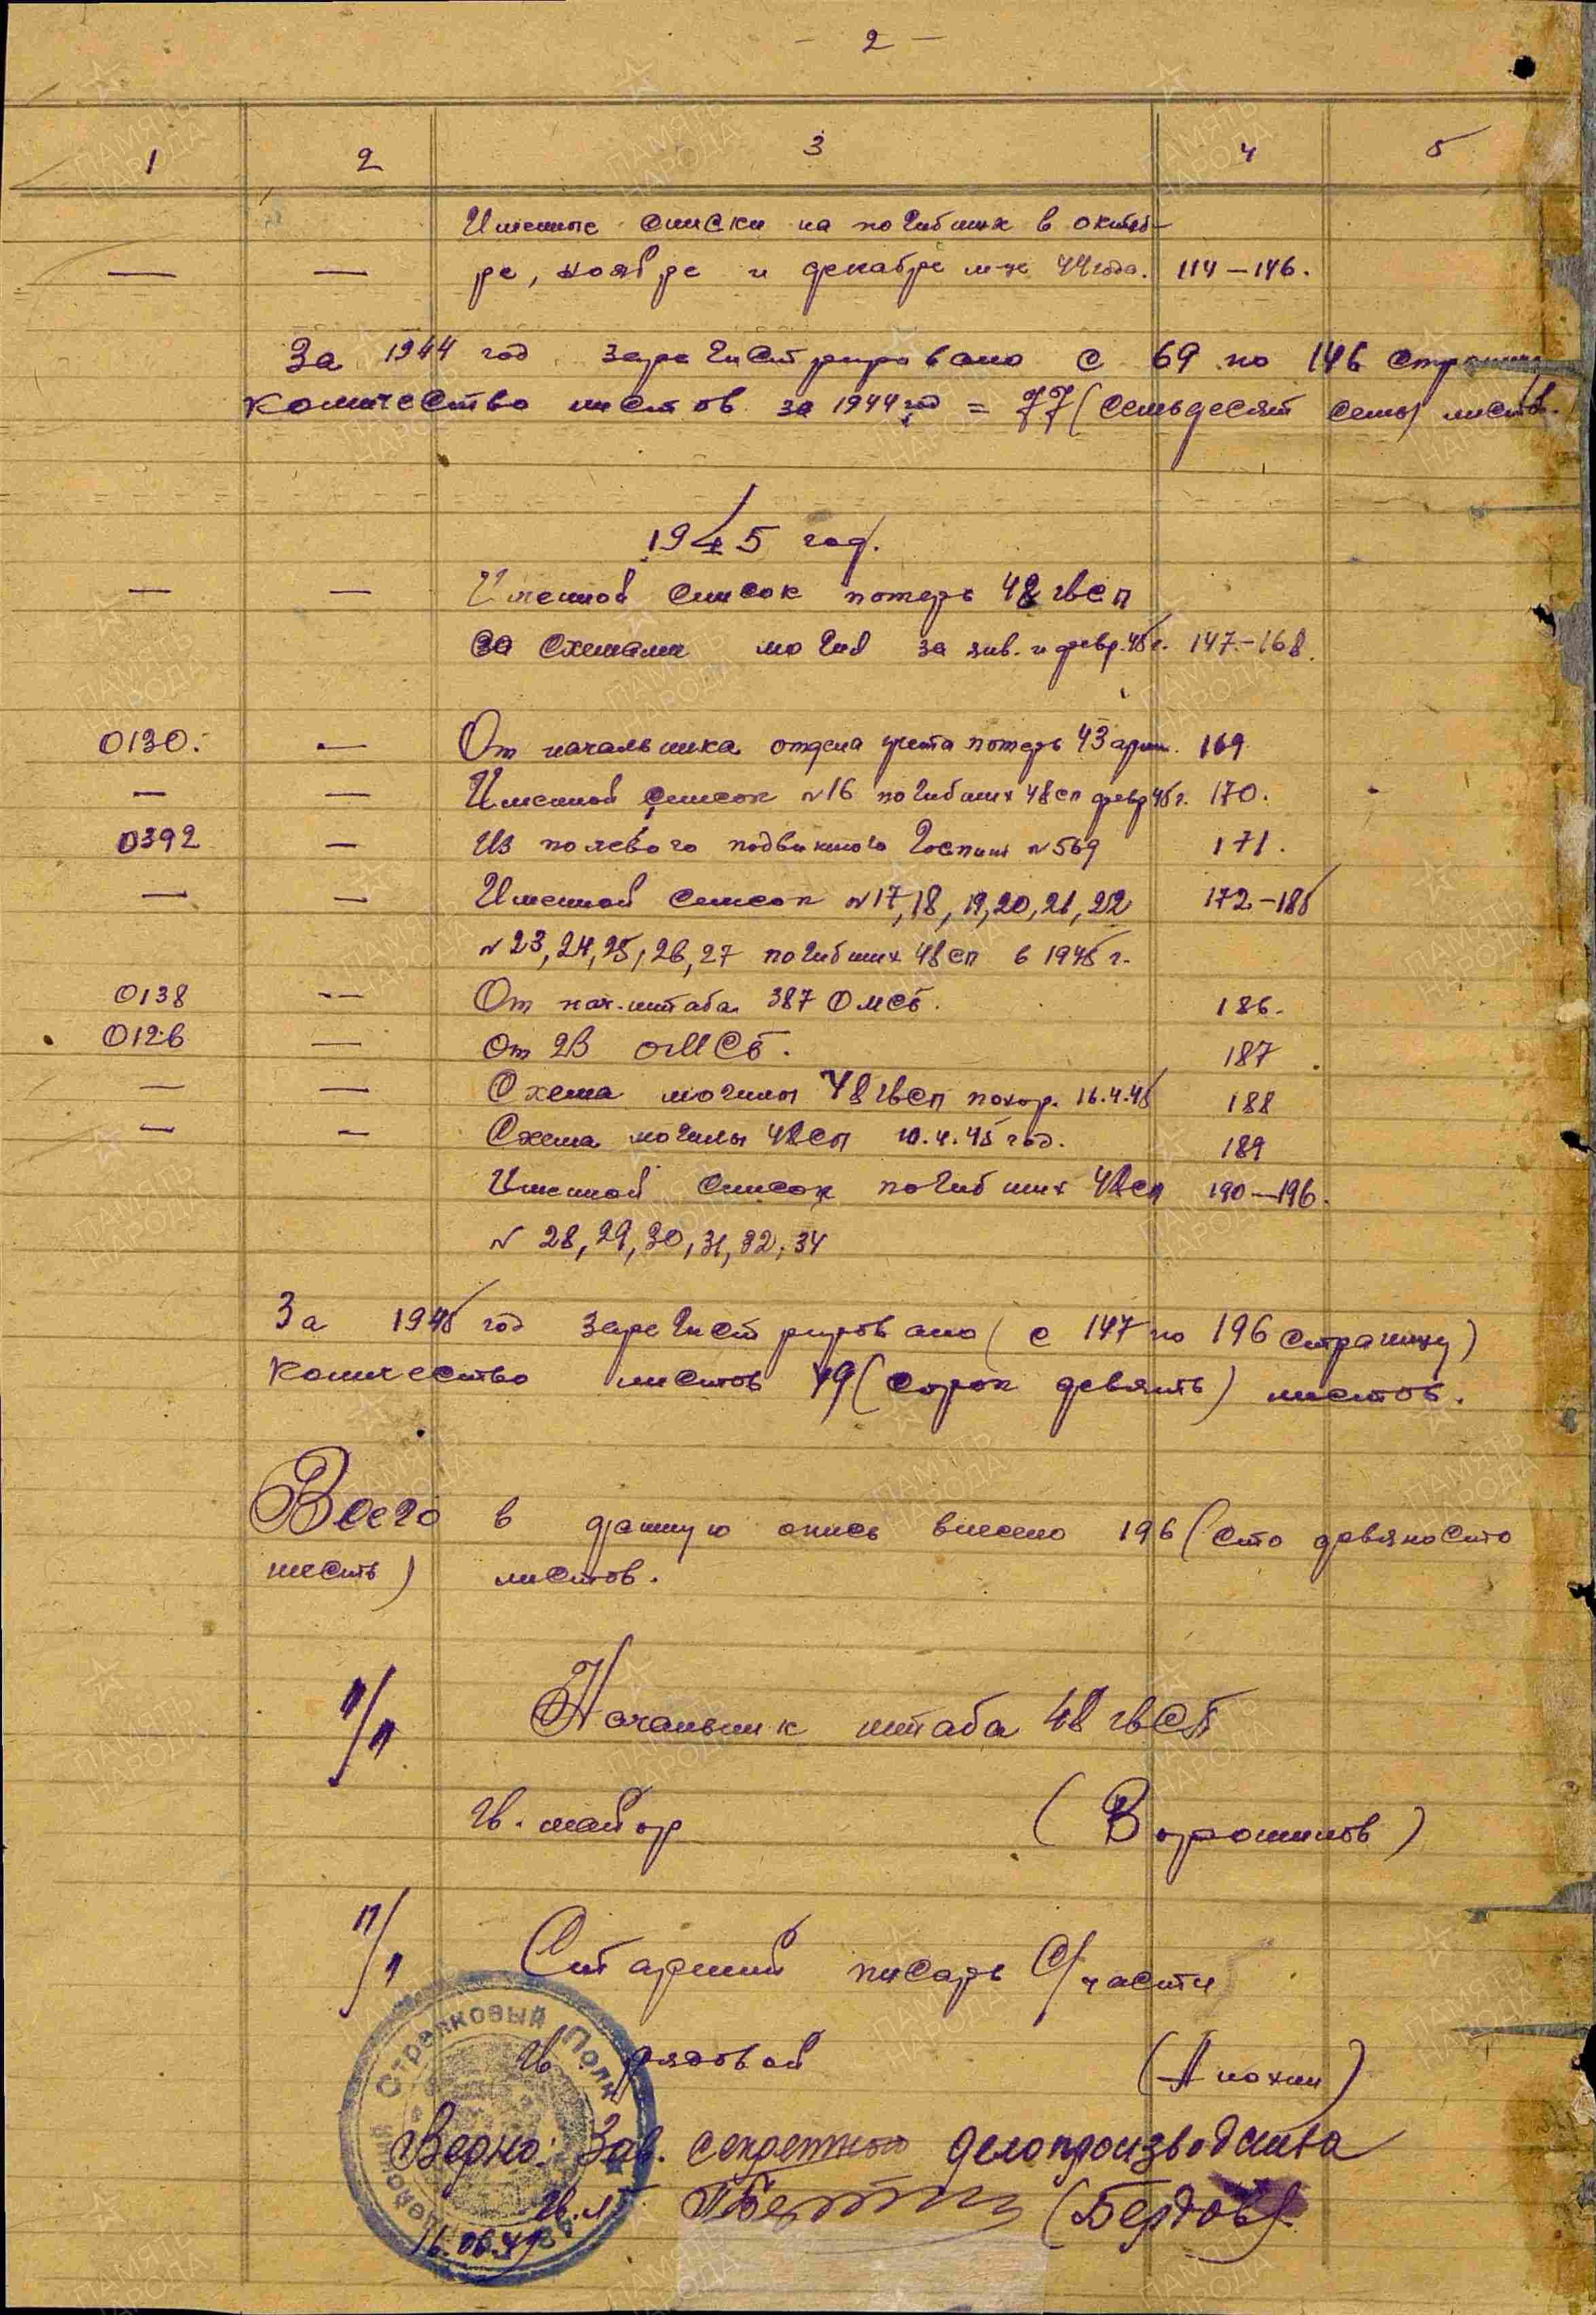 - 2 -
1 2 3 4 5
Именные списки на погибших в октяб-
— — ре, ноябре и декабре м-це 44 года. 114-146.
За 1944 год зарегистрировано с 69 по 146 страницу
количество листов за 1944 год = 77 (семьдесят семь) листов.
1945 год.
— — Именной список потерь 48 гвсп
со схемами могил за янв. и февр. 45 г. 147-168.
0130. — От начальника отдела учета потерь 43 арм. 169
— — Именной список №16 погибших 48 сп февр 45 г. 170.
0392 — Из полевого подвижного госпит №569 171.
— — Именной список №17, 18, 19, 20, 21, 22 172-185
№23, 24, 25, 26, 27 погибших 48 сп в 1945 г.
0138 — От нач. штаба 387 ОМСБ. 186.
0126 — От 2В ОМСБ. 187
— — Схема могилы 48 гвсп похор. 16.4.45 188
— — Схема могилы 48 сп 10.4.45 год. 189
Именной список погибших 48 сп 190-196.
№ 28, 29, 30, 31, 32, 34
За 1945 год зарегистрировано (с 147 по 196 страницу)
количество листов 49 (сорок девять) листов.
Всего в данную опись внесено 196 (сто девяносто
шесть) листов.
п/п Начальник штаба 48 гвсп
гв. майор (Ворошилов)
п/п Старший писарь С/части
Стрелковый Полк
гв. рядовой (Анохин)
Верно: Зав. секретного делопроизводства
гв. (Бердов)